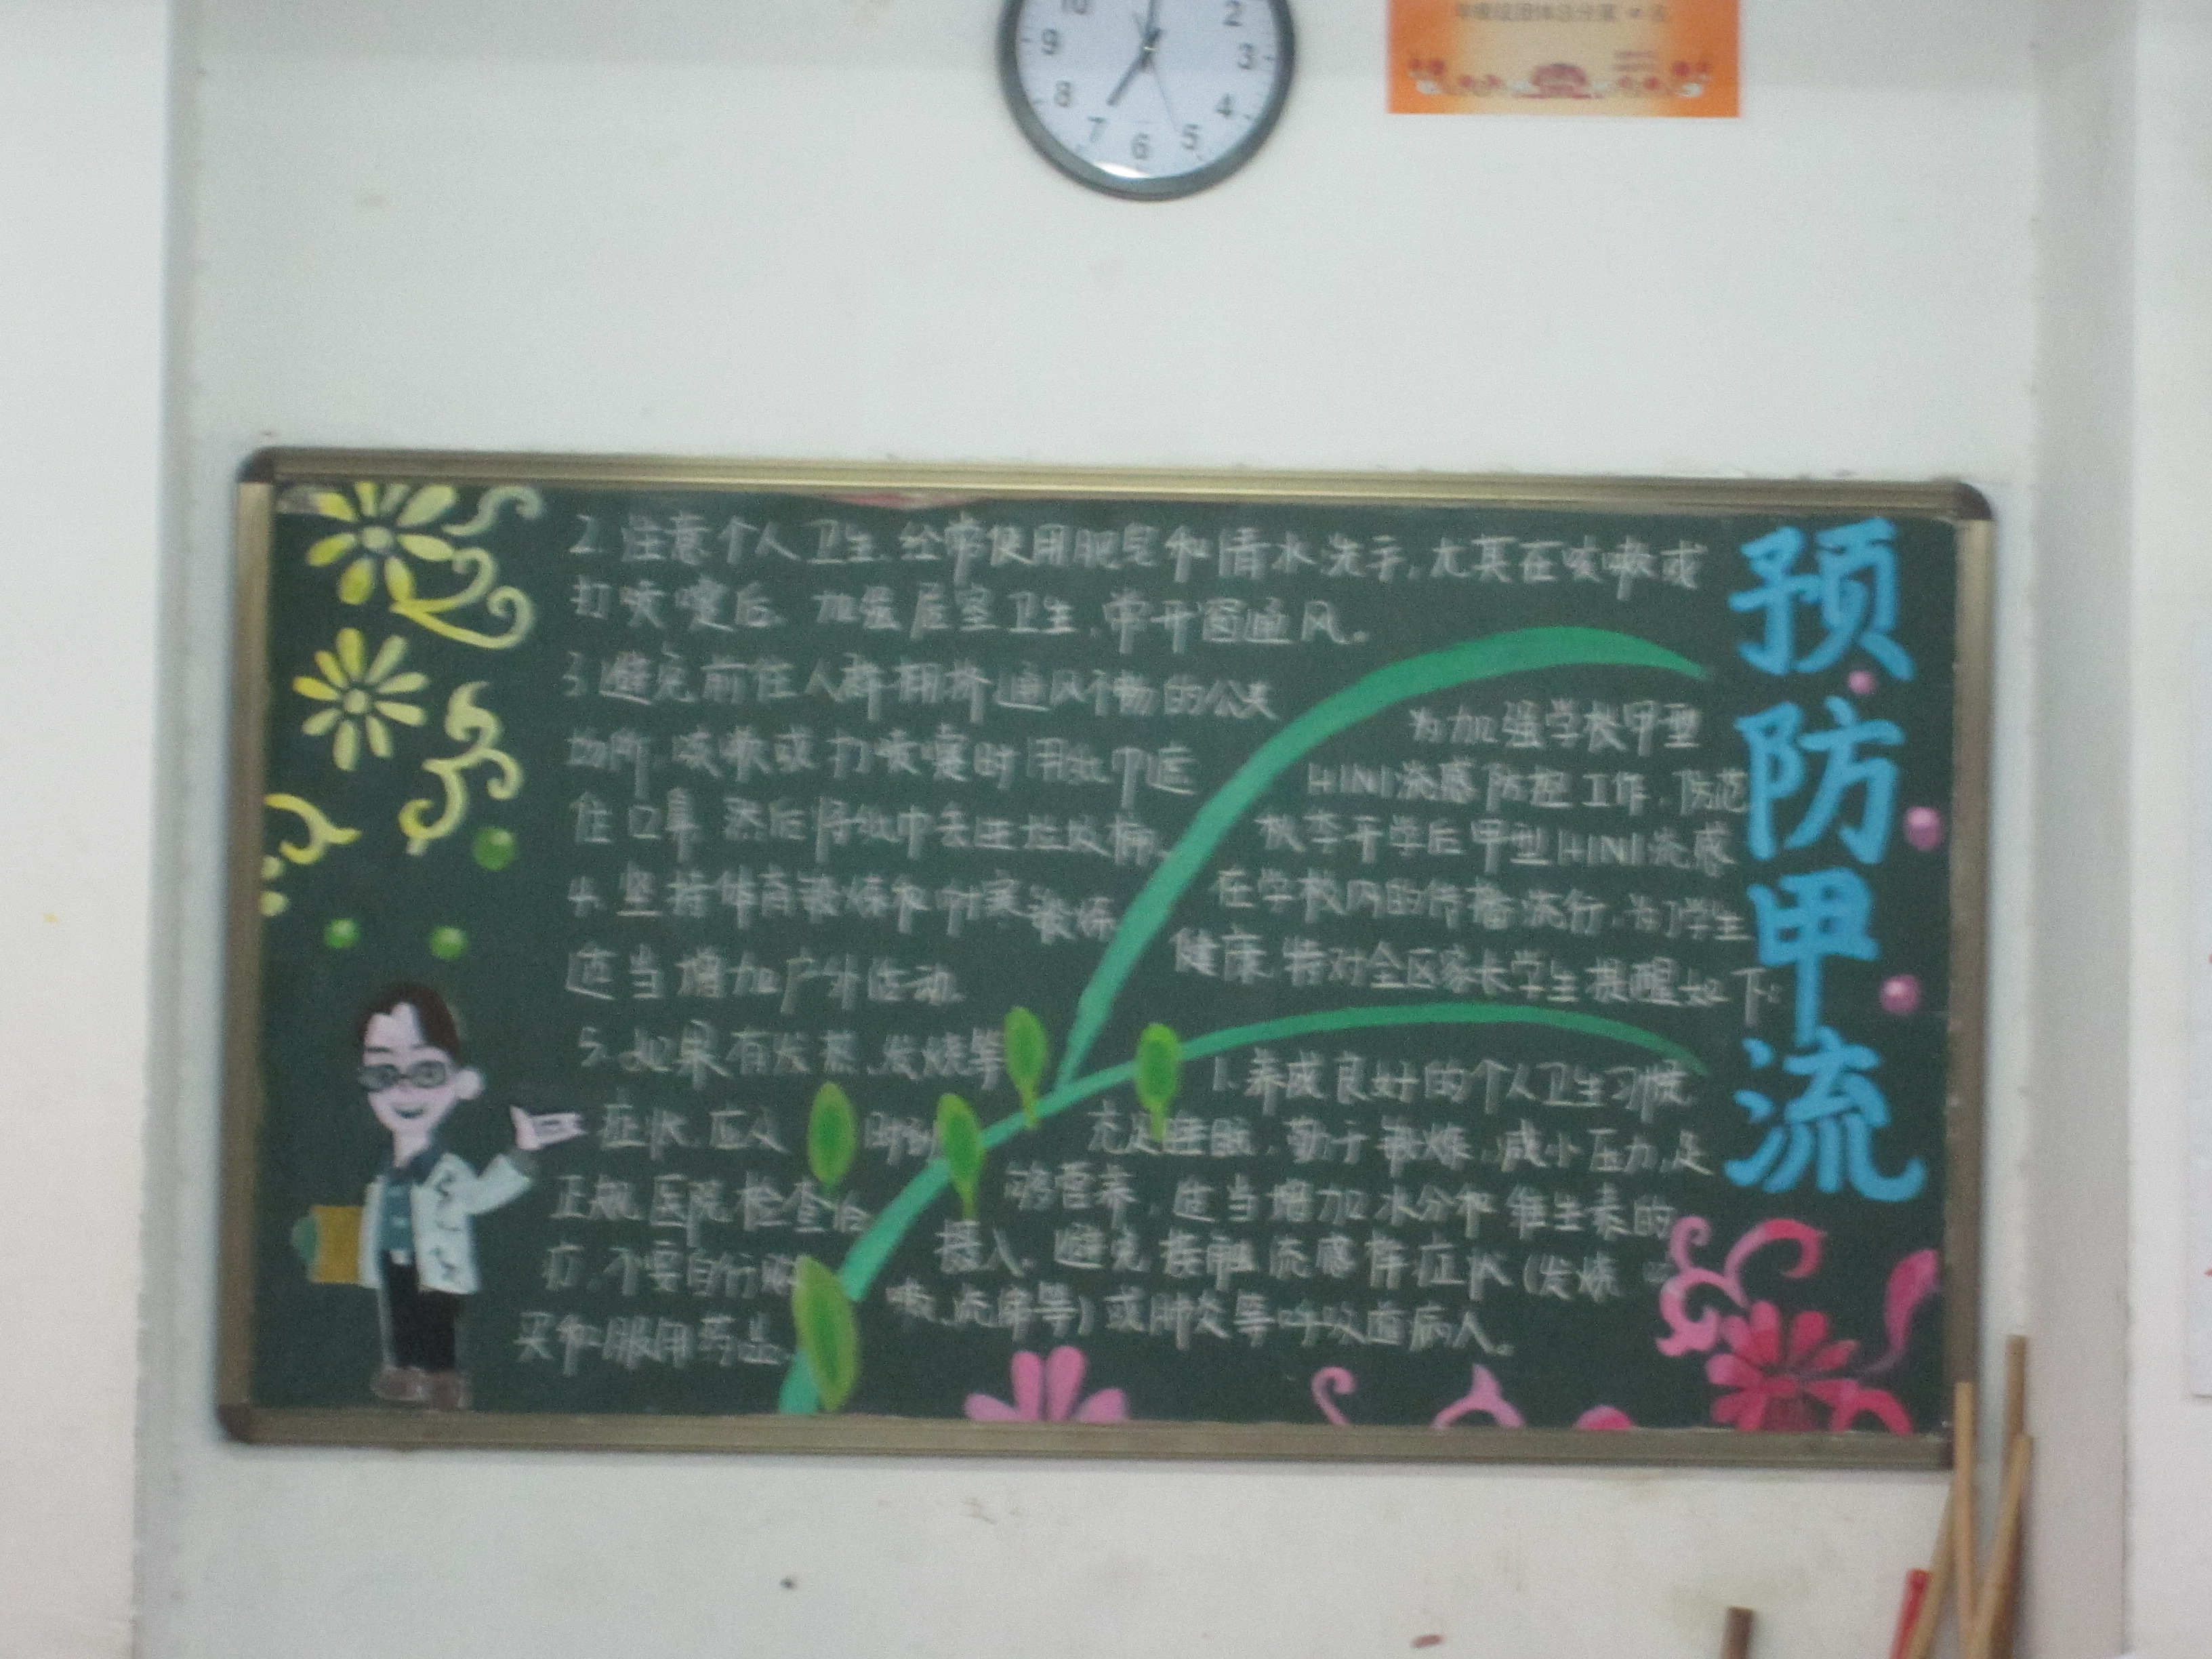 10
2
9
3
8
4
7
5
6
预防甲流
为加强学校甲型
H1N1流感防控工作,防范
秋季开学后甲型H1N1流感
在学校内的传播流行,为了学生
健康,特对全区家长学生提醒如下:
1.养成良好的个人卫生习惯
充足睡眠,勤于锻炼,减小压力,足
够营养,适当增加水分和维生素的
摄入。避免接触流感样症状(发烧
嗽,流涕等)或肺炎等呼吸道病人。
2.注意个人卫生,经常使用肥皂和清水洗手,尤其在咳嗽或
打喷嚏后.加强居室卫生,常开窗通风。
3.避免前往人群拥挤通风不畅的公共
场所,咳嗽或打喷嚏时用纸巾遮
住口鼻 然后将纸巾丢进垃圾桶。
4.坚持体育锻炼和耐寒锻炼
适当增加户外活动.
5.如果有发热、发烧等
症状,应及时到
正规医院检查治
疗,不要自行购
买和服用药品.